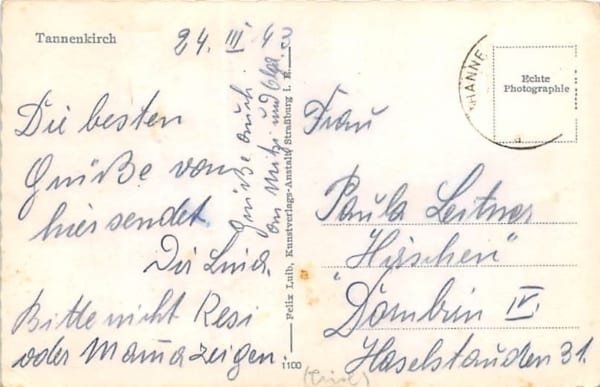 Tannenkirch
24. III. 43
Die besten
Grüße von
hier sendet
Dir Luid.
Bitte nicht Resi
oder Mama zeigen.
Grüße auch
an Mitzi und Olga.
Felix Luib, Kunstverlags-Anstalt, Straßburg i. E.
1100
HANNE
Echte
Photographie
Frau
Paula Leitner
"Hirschen"
Dornbirn IV.
Haselstauden 31.